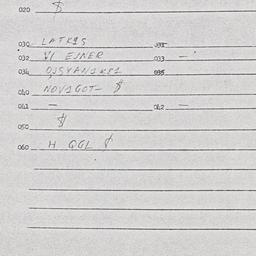 020 $
030 LATKIS 031
032 VI EJNER 033 —
034 OJSYANIKKI 035
040 NOVIGOT- $
041 — 042 —
050 $
060 H GGL $